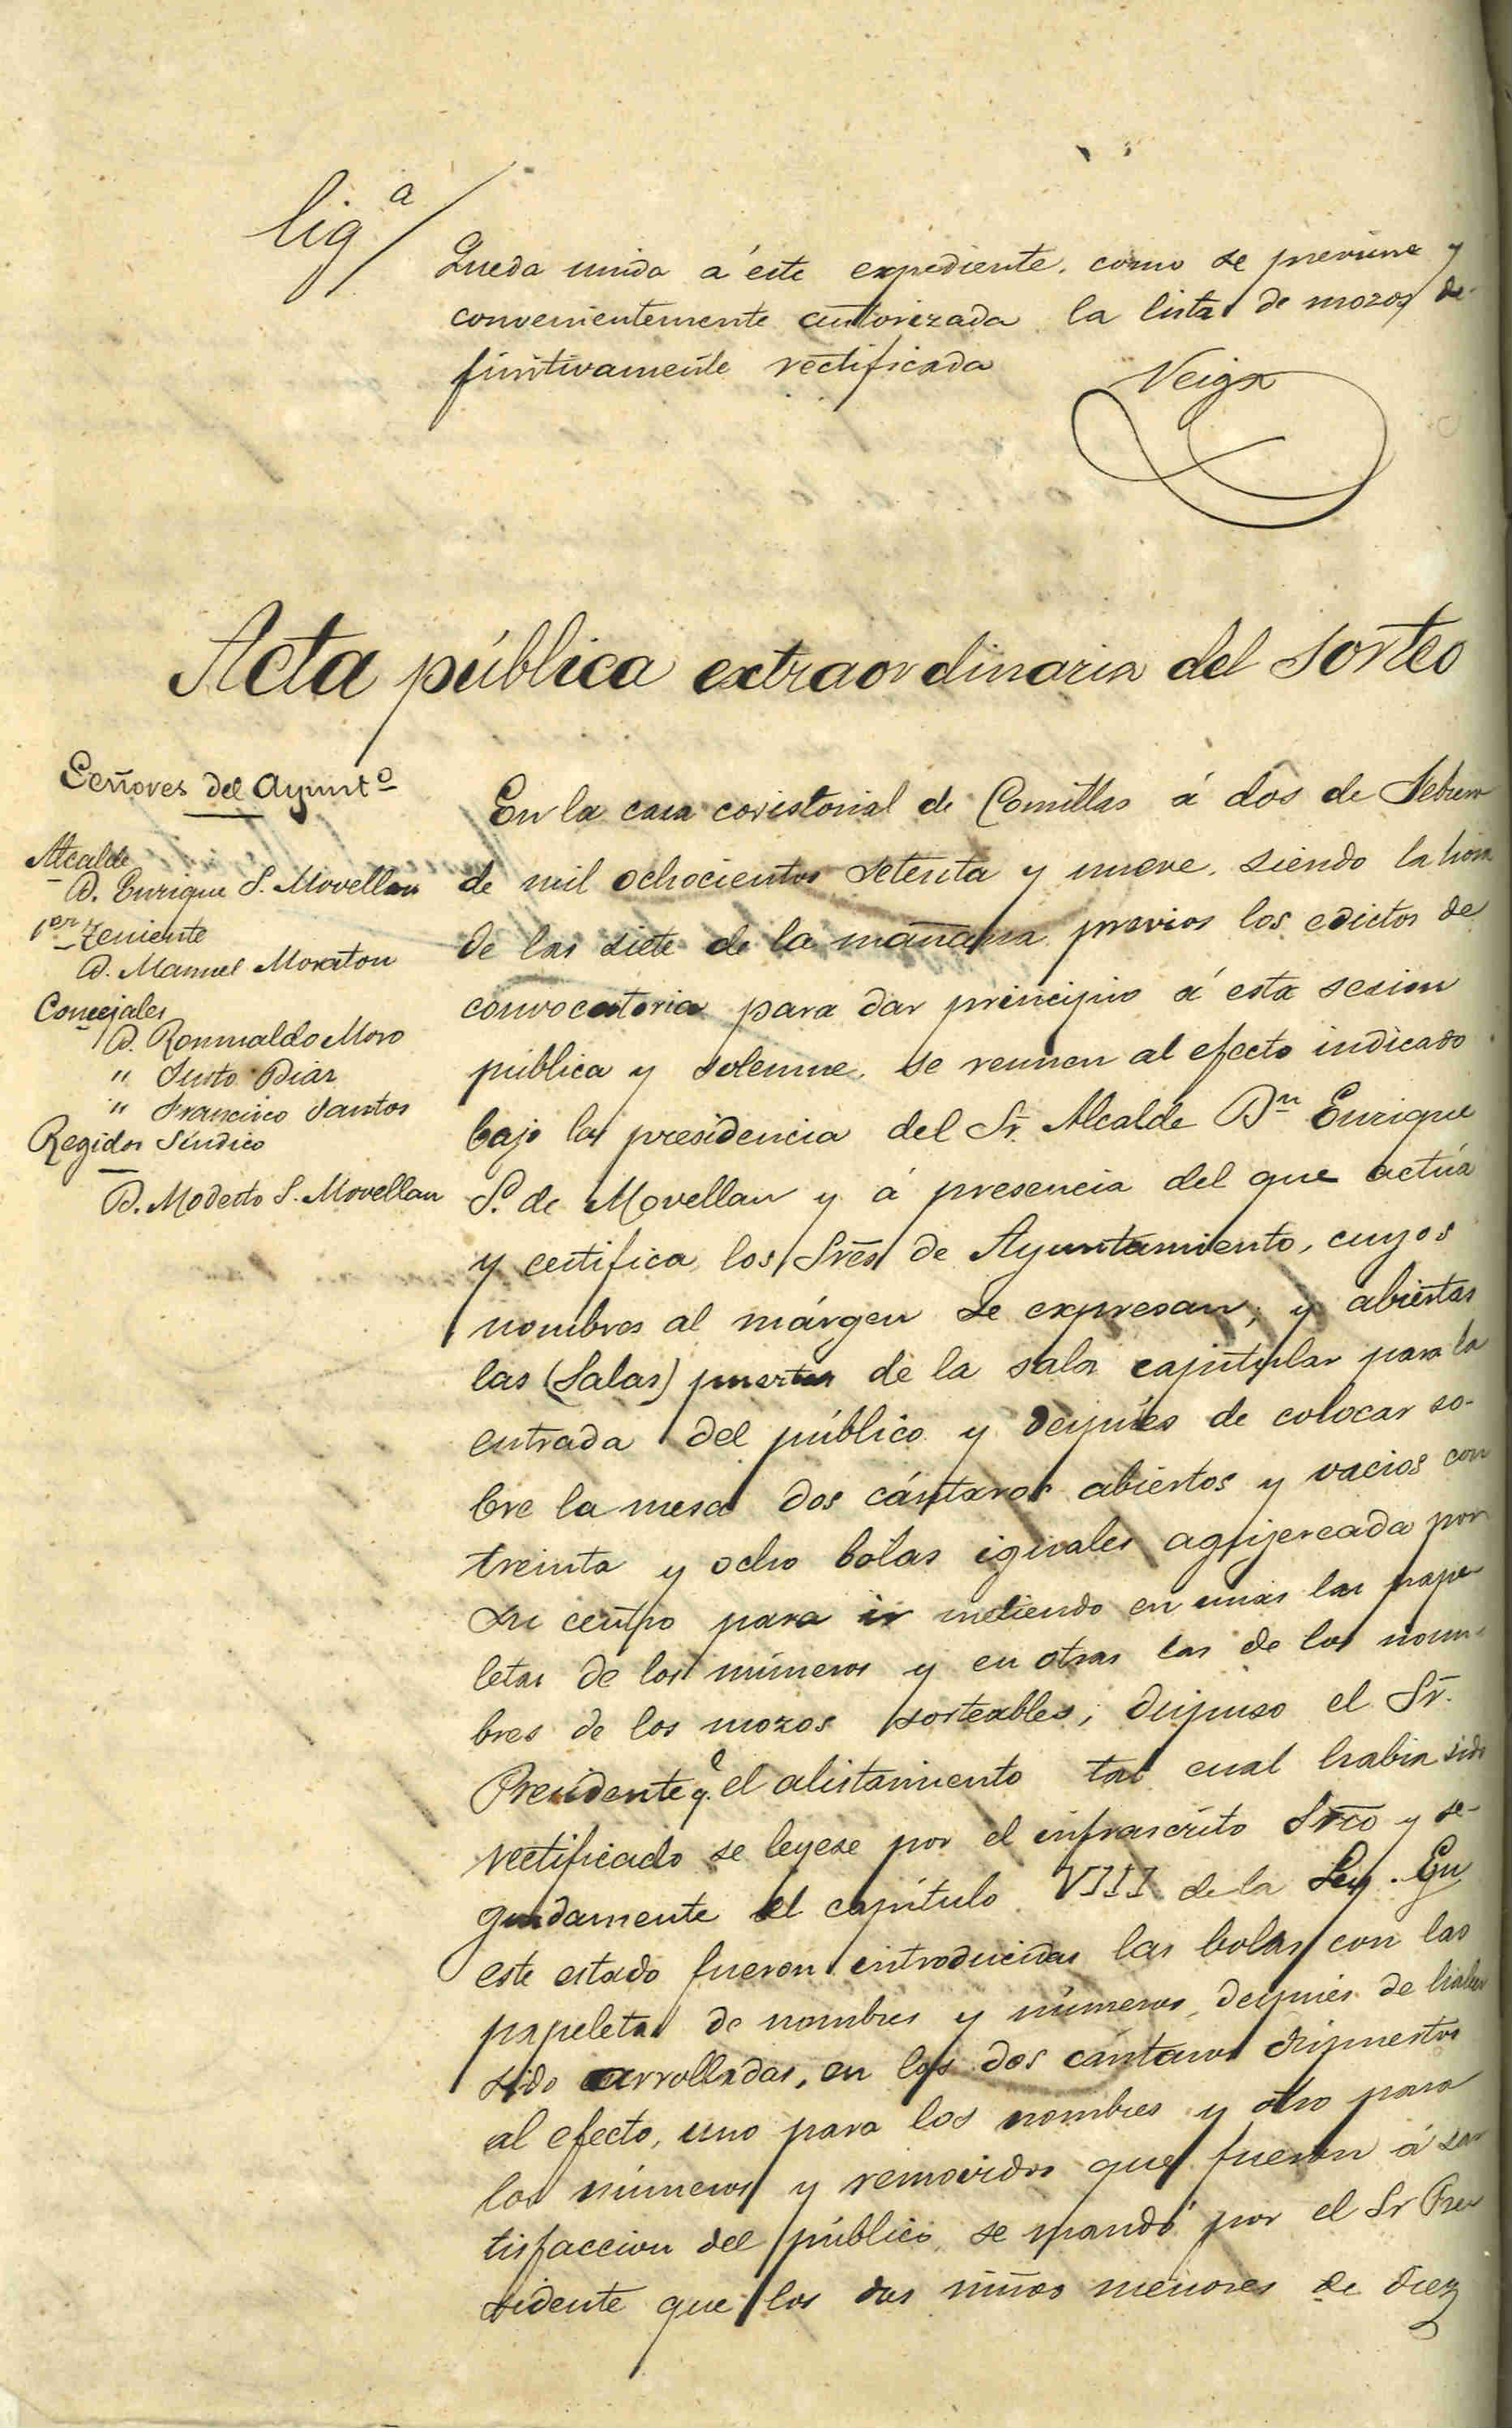 Lig.ª
Queda unida á éste expediente, como se previene y
convenientemente autorizada la lista de mozos de-
finitivamente rectificada
Veiga
Acta pública extraordinaria del Sorteo
Señores del Ayuntº
Alcalde
D. Enrique S. Movellan
1er Teniente
D. Manuel Moraton
Concejales
D. Romualdo Moro
" Justo Diaz
" Francisco Santos
Regidor Síndico
D. Modesto S. Movellan
En la casa coristorial de Comillas á dos de Febrero
de mil ochocientos setenta y nueve, siendo la hora
de las siete de la mañana previos los edictos de
convocatoria para dar principio á esta sesion
pública y solemne, se reunen al efecto indicado
bajo la presidencia del Sr. Alcalde Dn Enrique
S. de Movellan y á presencia del que actúa
y certifica, los Sres de Ayuntamiento, cuyos
nombres al márgen se expresan; y abiertas
las (Salas) puertas de la sala capitular para la
entrada del público y después de colocar so-
bre la mesa dos cántaros abiertos y vacios con
treinta y ocho bolas iguales agujereada por
su centro para ir metiendo en unas las pape-
letas de los números y en otras las de los nom-
bres de los mozos sorteables; dispuso el Sr.
Presidente q.e el alistamiento tal cual habia sido
rectificado se leyese por el infrascrito Srio y se-
guidamente el capítulo VIII de la Ley. En
este estado fueron introducidas las bolas con las
papeletas de nombres y números, después de haber
sido arrolladas, en los dos cántaros dispuestos
al efecto, uno para los nombres y otro para
los números y removidos que fueron á sa-
tisfaccion del público, se mandó por el Sr Pre-
sidente que los dos niños menores de diez